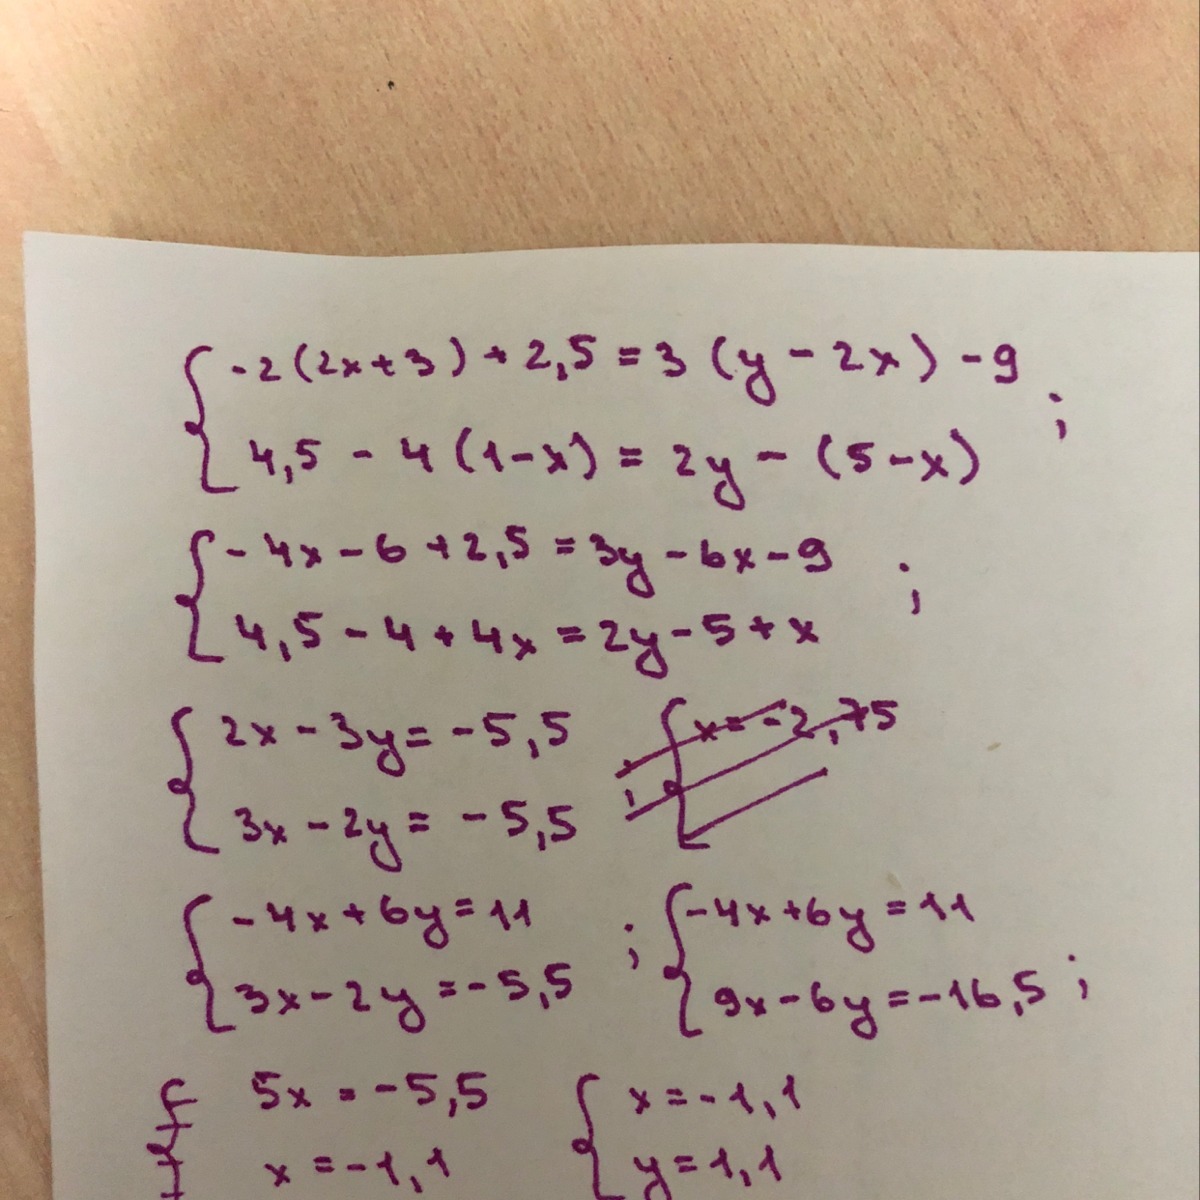 -2(2x+3)+2,5=3(y-2x)-9
4,5-4(1-x)=2y-(5-x) ;
-4x-6+2,5=3y-6x-9
4,5-4+4x=2y-5+x ;
2x-3y=-5,5 x=-2,75
3x-2y=-5,5 ;
-4x+6y=11 ; -4x+6y=11
3x-2y=-5,5 9x-6y=-16,5 ;
5x=-5,5 x=-1,1
x=-1,1 y=1,1